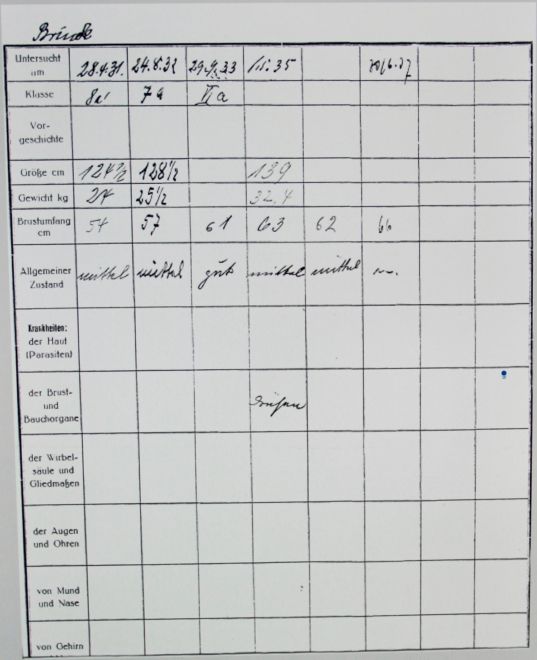 Untersucht am 28.4.31. 24.8.32 29.9.33 35
Klasse 7a IIa
Vor-
geschichte
Größe cm 124½ 128½ 139
Gewicht kg 24 25½ 32.4
Brustumfang cm 54 57 61 63 62 66
Allgemeiner Zustand mittel mittel gut mittel mittel
Krankheiten:
der Haut
(Parasiten)
der Brust-
und
Bauchorgane Drüsen
der Wirbel-
säule und
Gliedmaßen
der Augen
und Ohren
von Mund
und Nase
von Gehirn